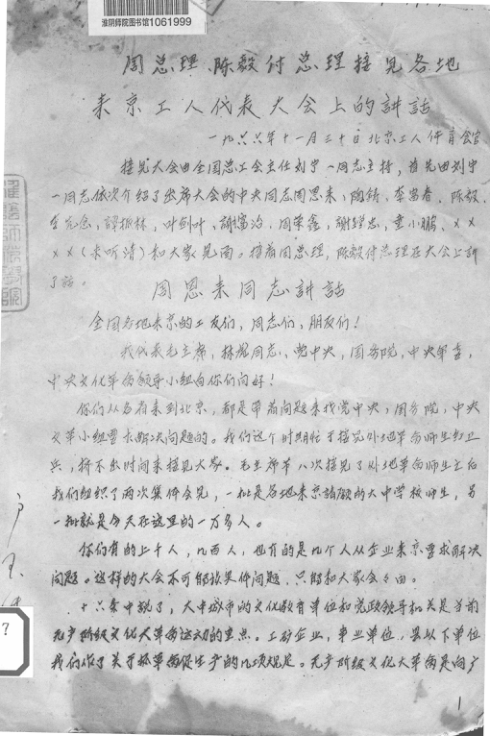 淮阴师院图书馆1061999
周总理、陈毅付总理接见各地
来京工人代表大会上的讲话
一九六六年十一月三十日北京工人体育馆
接见大会由全国总工会主任刘宁一同志主持，首先由刘宁
一同志依次介绍了出席大会的中央同志周恩来，陶铸，李富春，陈毅，
谭振林，叶剑英，谢富治，周荣鑫，童小鹏，××
××（未听清）和大家见面。接着周总理，陈毅付总理在大会上讲
了话。
周恩来同志讲话
全国各地来京的工友们，同志们，朋友们！
我代表毛主席，林彪同志、党中央，国务院，中央军委，
中央文化革命领导小组向你们问好！
你们从各省来到北京，都是带着问题来找党中央，国务院，中央
文革小组要求解决问题的。我们这个时期忙于接见外地革命师生红卫
兵，挤不出时间来接见大家。毛主席第八次接见了外地革命师生之后
我们组织了两次集体会见，一批是各地来京请愿的大中学校师生，另
一批就是今天在这里的一万多人。
你们有的上千人，几百人，也有的是几个人从企业来京要求解决
问题。这样的大会不可能谈具体问题，只能和大家会个面。
十六条中说了，大中城市的文化教育单位和党政领导机关是当前
无产阶级文化大革命运动的重点。工矿企业，事业单位，县以下单位
我们作了关于抓革命促生产的几项规定。无产阶级文化大革命是向广
1